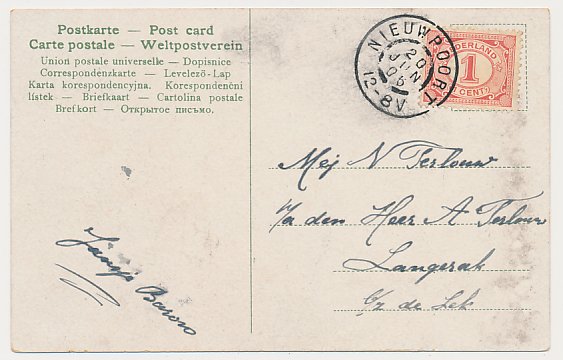 Postkarte — Post card
Carte postale — Weltpostverein
Union postale universelle — Dopisnice
Correspondenzkarte — Levelező-Lap
Karta korespondencyjna. Korespondenční
lístek — Briefkaart — Cartolina postale
Brefkort — Открытое письмо.
NIEUWPOORT
20
JUN
12-8V
NEDERLAND
1
CENT
Mej N Terlouw
p/a den Heer A Terlouw
Langerak
a/z de Lek
Baron